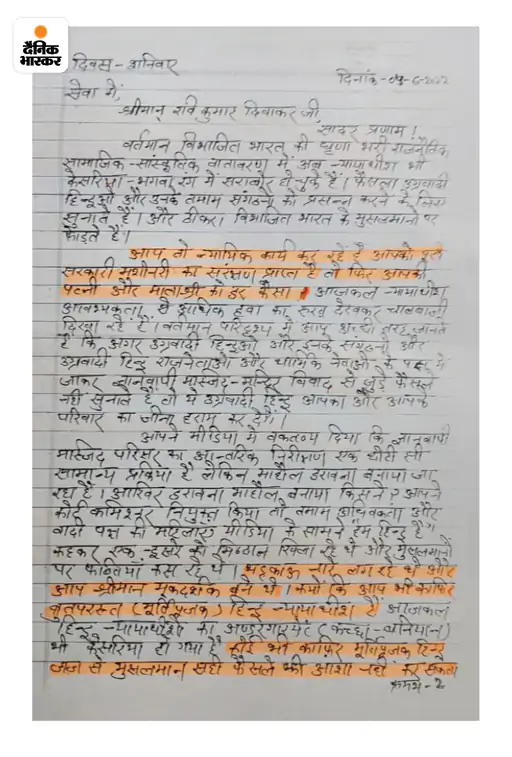 दैनिक
भास्कर
दिवस - शनिवार
दिनांक - 04-6-2022
सेवा में,
श्रीमान् रवि कुमार दिवाकर जी,
सादर प्रणाम !
वर्तमान विभाजित भारत की घृणा भरी राजनैतिक
सामाजिक - सांस्कृतिक वातावरण में अब न्यायाधीश भी
केसरिया - भगवा रंग में सराबोर हो चुके हैं। फैसला उग्रवादी
हिन्दुओं और उनके तमाम संगठनों को प्रसन्न करने के लिए
सुनाते हैं। और ठीकरा विभाजित भारत के मुसलमानों पर
फोड़ते हैं।
आप तो न्यायिक कार्य कर रहे हैं आपको पूरी
सरकारी मशीनरी का संरक्षण प्राप्त है तो फिर आपकी
पत्नी और माताश्री को डर कैसा। आजकल न्यायाधीश
आवश्यकता से अधिक हवा का रुख देखकर चालबाजी
दिखा रहे हैं। वर्तमान परिदृश्य में आप अच्छी तरह जानते
है कि अगर उग्रवादी हिन्दुओं और इनके संगठनों और
उग्रवादी हिन्दू राजनेताओं और धार्मिक नेताओं के पक्ष में
जाकर ज्ञानवापी मस्जिद - मन्दिर विवाद से जुड़े फैसले
नहीं सुनाते है तो ये उग्रवादी हिन्दू आपका और आपके
परिवार का जीना हराम कर देंगे।
आपने मीडिया में वक्तव्य दिया कि ज्ञानवापी
मस्जिद परिसर का आन्तरिक निरीक्षण एक छोटी सी
सामान्य प्रक्रिया है लेकिन माहौल डरावना बनाया जा
रहा है। आखिर डरावना माहौल बनाया किसने? आपने
कोई कमिश्नर नियुक्त किया तो तमाम अधिवक्ता और
वादी पक्ष की महिलाएं मीडिया के सामने "हम हिन्दू हैं"
कहकर एक - दूसरे को मिष्ठान खिला रहे थे और मुसलमानों
पर फब्तियां कस रहे थे। भड़काऊ नारे लग रहे थे और
आप श्रीमान् मूकदर्शक बने थे। क्यों कि आप भी काफिर
बुतपरस्त (मूर्तिपूजक) हिन्दू न्यायाधीश हैं आजकल
हिन्दू - न्यायाधीशों का अण्डरगारमेंट (कच्छा - बनियान)
भी केसरिया हो गया है कोई भी काफिर मूर्तिपूजक हिन्दू
जज से मुसलमान सही फैसले की आशा नहीं कर सकता
क्रमशः - 2